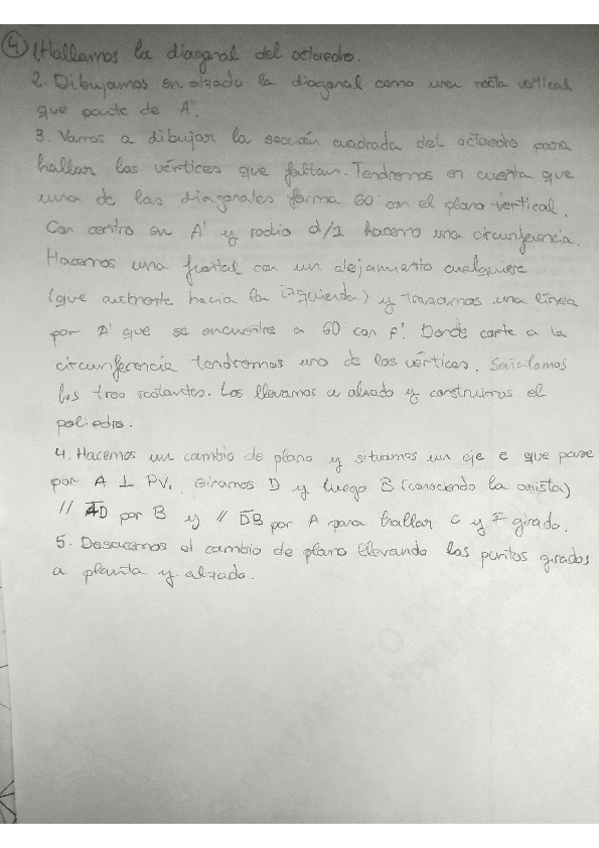 ④ 1. Hallamos la diagonal del octaedro.
2. Dibujamos en alzado la diagonal como una recta vertical
que parte de A".
3. Vamos a dibujar la sección cuadrada del octaedro para
hallar los vértices que faltan. Tendremos en cuenta que
una de las diagonales forma 60 con el plano vertical.
Con centro en A' y radio d/2 hacemo una circunferencia.
Hacemos una frontal con un alejamiento cualquiera
(que hacia la izquierda) y trazamos una línea
por A' que se encuentre a 60 con f'. Donde corte a la
circunferencia tendremos uno de los vértices.
los tres restantes. Los llevamos a alzado y construimos el
poliedro.
4. Hacemos un cambio de plano y situamos un eje e que pase
por A ⊥ PV₁. Giramos D y luego B (conociendo la arista)
// AD por B y // DB por A para hallar C y F girado.
5. Desacemos el cambio de plano llevando los puntos girados
a planta y alzado.